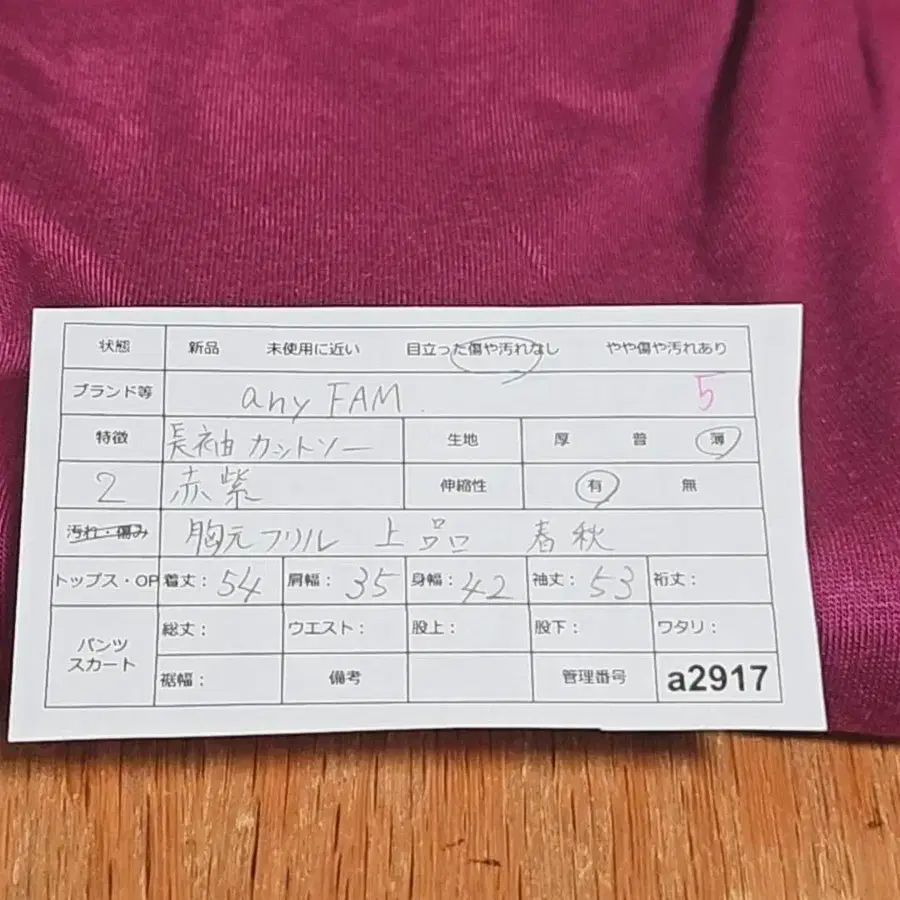 状態 新品 未使用に近い 目立った傷や汚れなし やや傷や汚れあり
ブランド等 any FAM. 5
特徴 長袖カットソー 生地 厚 普 薄
2 赤紫 伸縮性 有 無
汚れ・傷み 胸元フリル 上品 春秋
トップス・OP 着丈: 54 肩幅: 35 身幅: 42 袖丈: 53 裄丈:
パンツ スカート 総丈: ウエスト: 股上: 股下: ワタリ:
裾幅: 備考 管理番号 a2917